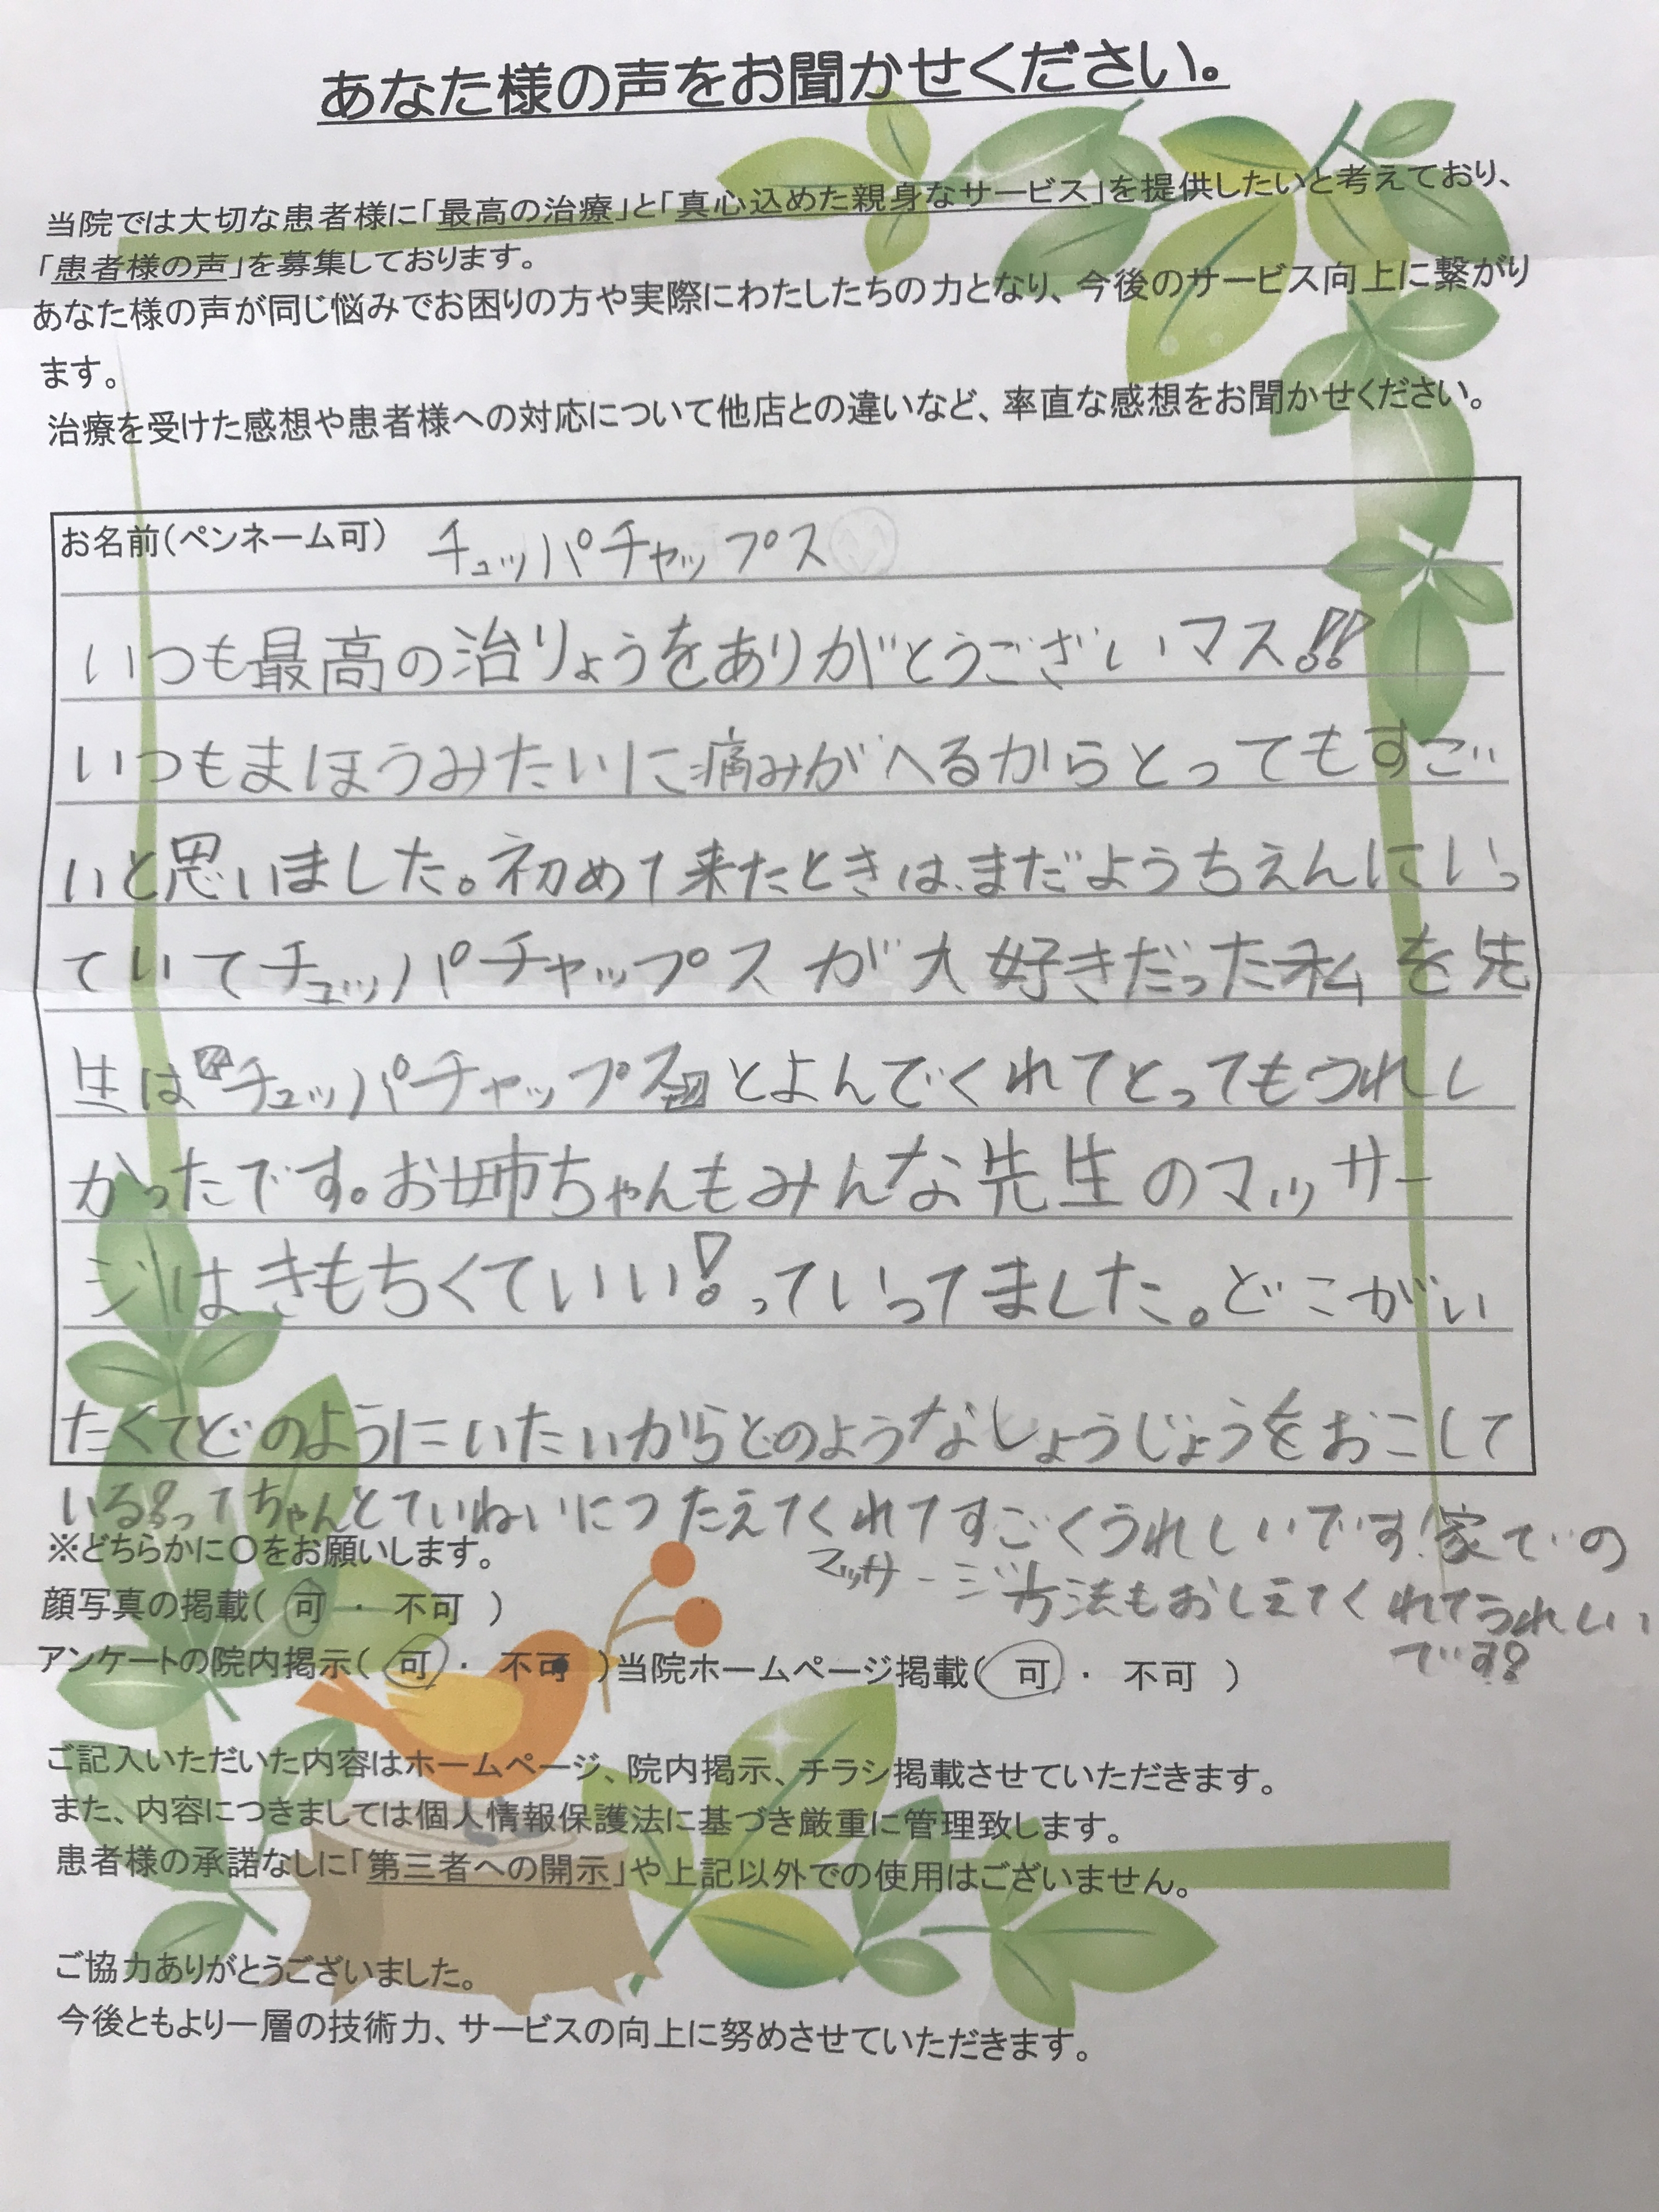 あなた様の声をお聞かせください。
当院では大切な患者様に「最高の治療」と「真心込めた親身なサービス」を提供したいと考えており、
「患者様の声」を募集しております。
あなた様の声が同じ悩みでお困りの方や実際にわたしたちの力となり、今後のサービス向上に繋がり
ます。
治療を受けた感想や患者様への対応について他店との違いなど、率直な感想をお聞かせください。
お名前(ペンネーム可) チュッパチャップス
いつも最高の治りょうをありがとうございマス!!
いつもまほうみたいに痛みがへるからとってもすご
いと思いました。初めて来たときは、まだようちえんにいっ
ていてチュッパチャップスが大好きだった私を先
生は『チュッパチャップス』とよんでくれてとってもうれし
かったです。お姉ちゃんもみんな先生のマッサー
ジはきもちくていい!っていってました。どこがい
たくてどのようにいたいからどのようなしょうじょうをおこして
いる?ってちゃんとていねいにつたえてくれてすごくうれしいです!家での
マッサージ方法もおしえてくれてうれしい
です!
※どちらかに〇をお願いします。
顔写真の掲載( 可 ・ 不可 )
アンケートの院内掲示( 可 ・ 不可 )当院ホームページ掲載( 可 ・ 不可 )
ご記入いただいた内容はホームページ、院内掲示、チラシ掲載させていただきます。
また、内容につきましては個人情報保護法に基づき厳重に管理致します。
患者様の承諾なしに「第三者への開示」や上記以外での使用はございません。
ご協力ありがとうございました。
今後ともより一層の技術力、サービスの向上に努めさせていただきます。